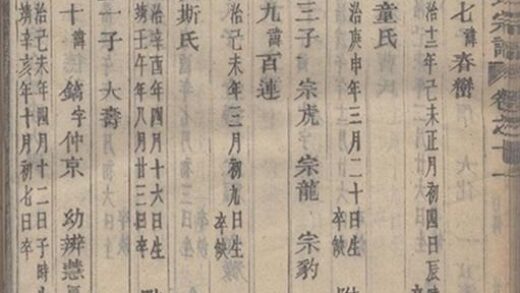 宗譜 卷之十一
七 諱 春
治十二年己未正月初四日
童氏
治庚申年三月二十日生 卒缺
三子 宗虎 宗龍 宗豹
九 諱 百連
治己未年三月初九日生 卒缺
斯氏
治辛酉年四月十六日生
靖壬午年八月廿三日卒
一子 大壽
十 諱 鎬 字仲京 幼辨慧
治己未年四月十二日子時
靖辛亥年十月初七日卒